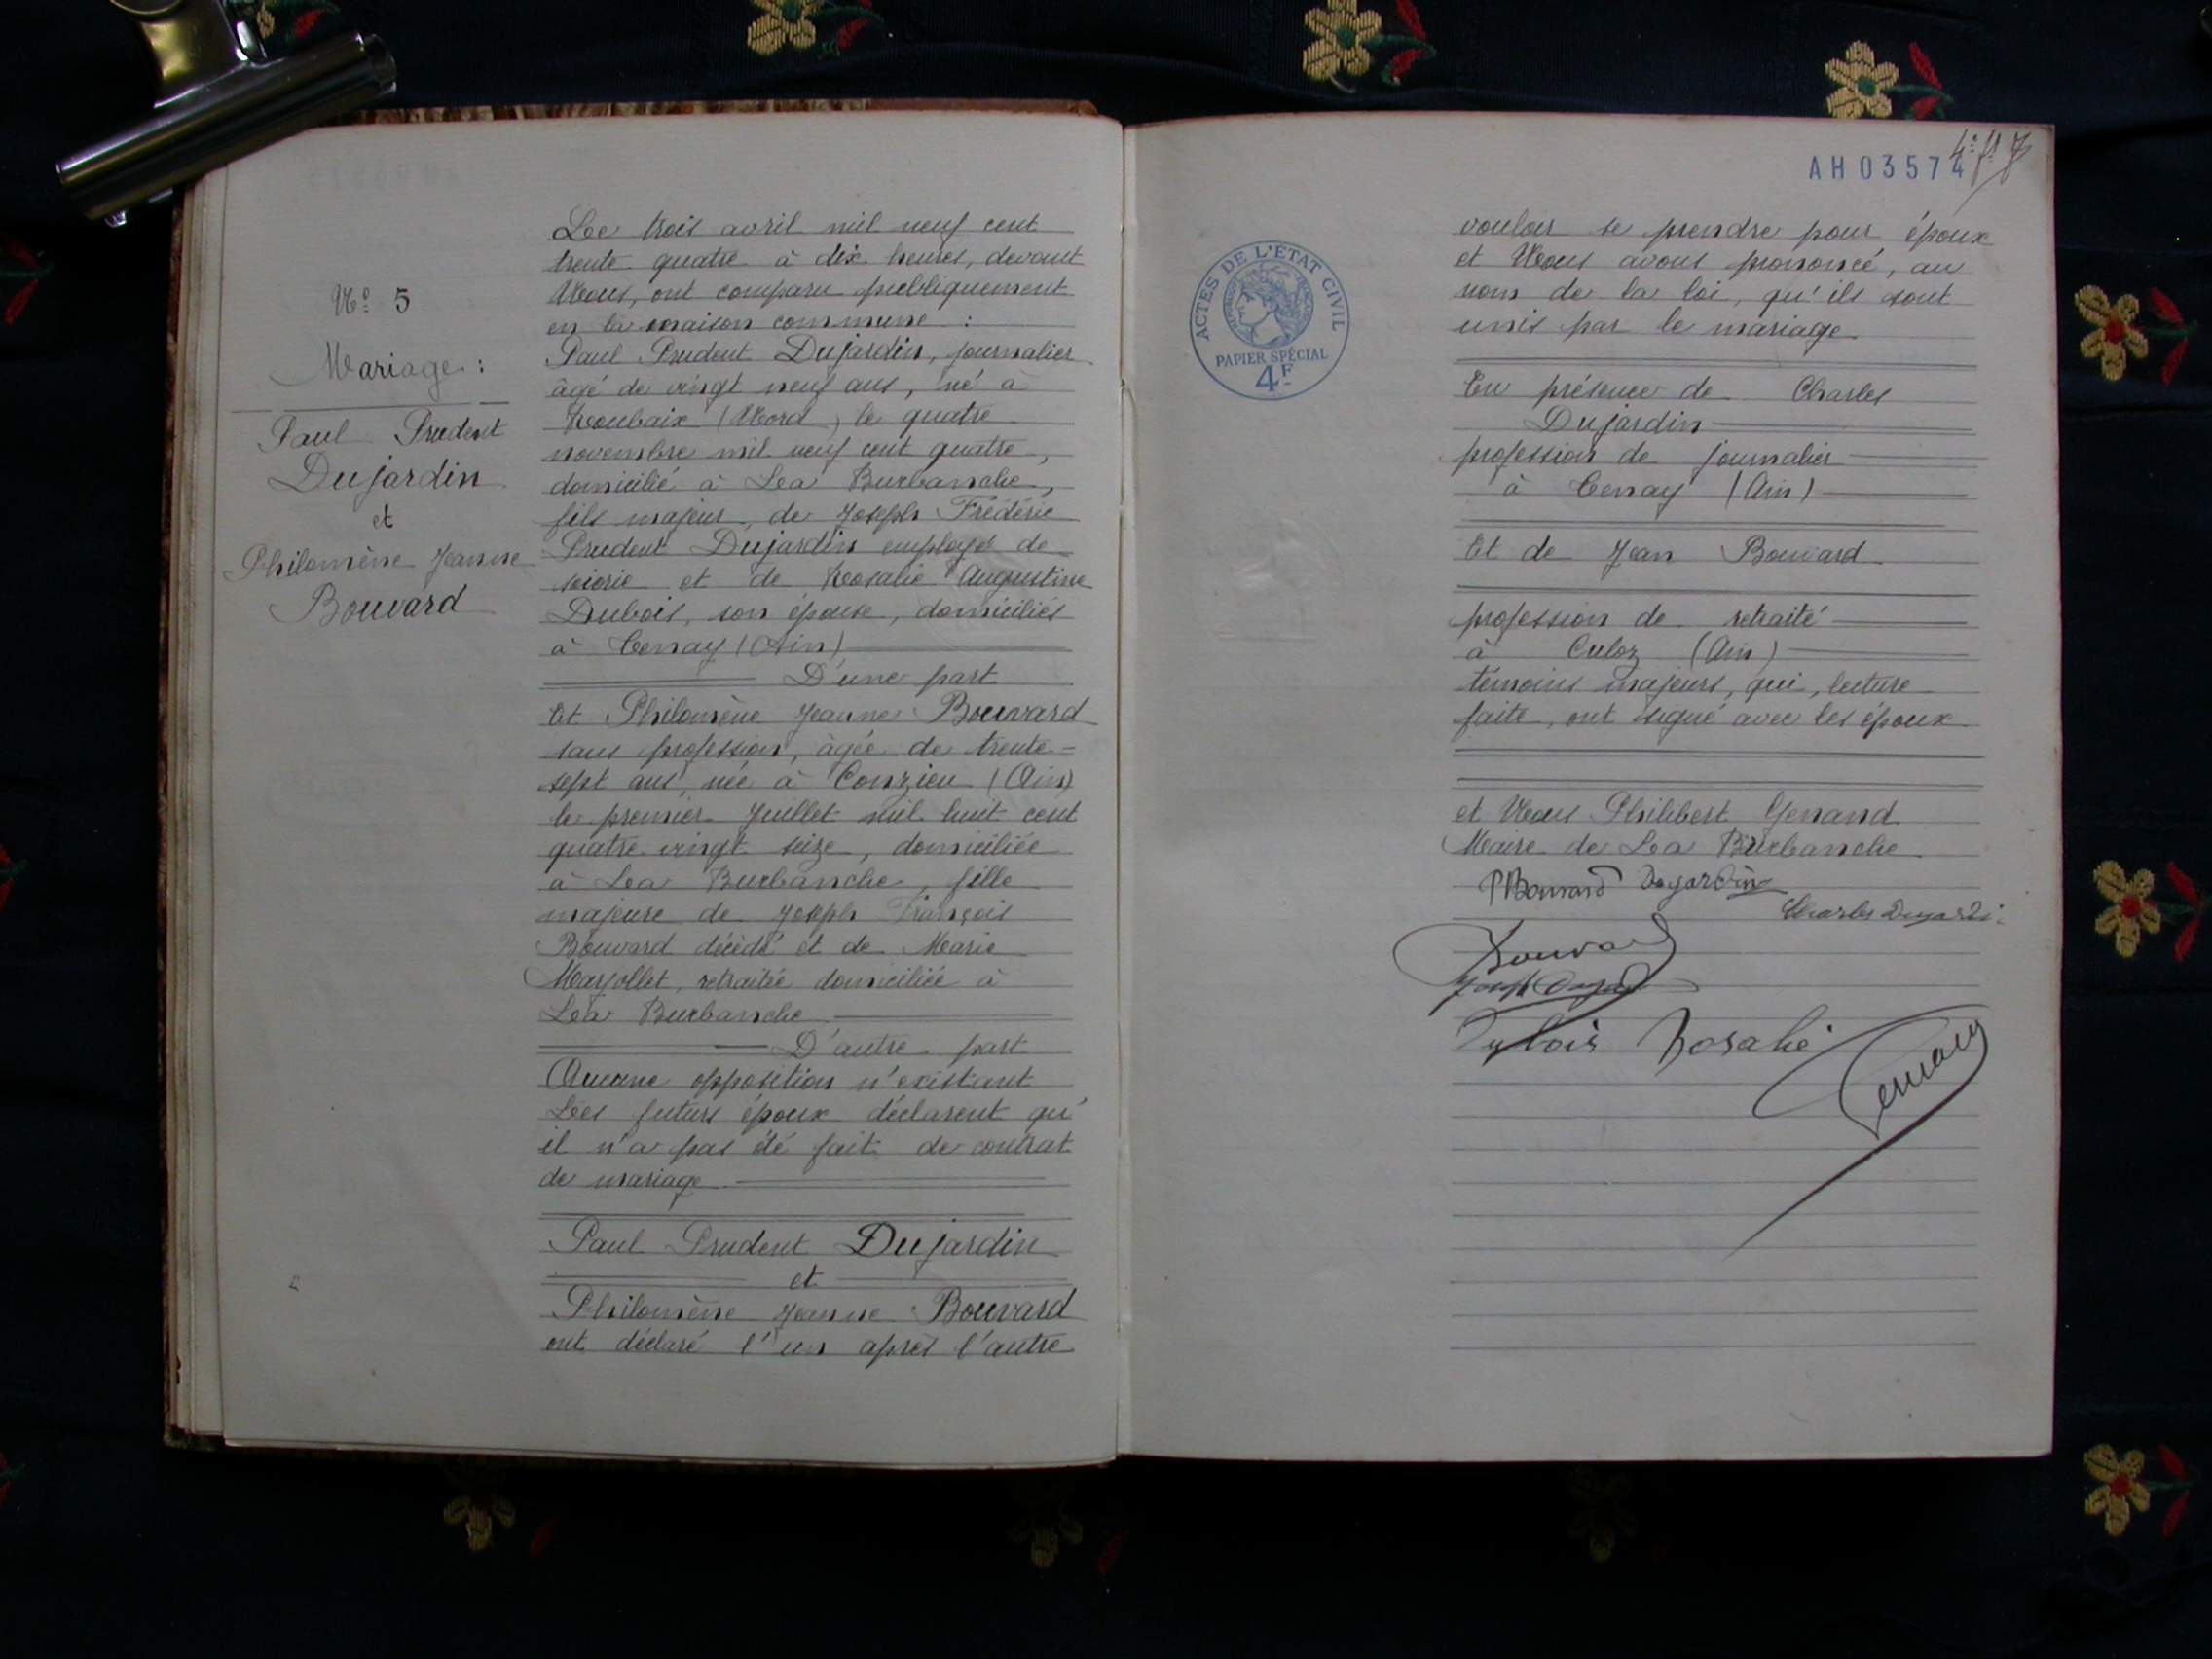 N° 5
Mariage :
Paul Prudent
Dujardin
et
Philomène Jeanne
Bouvard
Le trois avril mil neuf cent
trente quatre à dix heures, devant
Nous, ont comparu publiquement
en la maison commune :
Paul Prudent Dujardin, journalier
âgé de vingt neuf ans, né à
Roubaix (Nord) le quatre
novembre mil neuf cent quatre,
domicilié à La Burbanche,
fils majeur, de Joseph Frédéric
Prudent Dujardin employé de
soierie et de Rosalie Augustine
Dubois, son épouse, domiciliés
à Tenay (Ain)
D'une part
Et Philomène Jeanne Bouvard
sans profession, âgée de trente-
sept ans, née à Conzieu (Ain)
le premier Juillet mil huit cent
quatre vingt seize, domiciliée
à La Burbanche, fille
majeure de Joseph François
Bouvard décédé et de Marie
Marjollet, retraitée domiciliée à
La Burbanche
D'autre part
Aucune opposition n'existant
Les futurs époux déclarent qu'
il n'a pas été fait de contrat
de mariage
Paul Prudent Dujardin
et
Philomène Jeanne Bouvard
ont déclaré l'un après l'autre
AH03574
vouloir se prendre pour époux
et Nous avons prononcé, au
nom de la loi, qu'ils sont
unis par le mariage
ACTES DE L'ETAT CIVIL
PAPIER SPÉCIAL
4F
En présence de Charles
Dujardin
profession de journalier
à Tenay (Ain)
Et de Jean Bouvard
profession de retraité
à Culoz (Ain)
témoins majeurs, qui, lecture
faite, ont signé avec les époux
et Nous Philibert Genand
Maire de La Burbanche
P Bouvard Dujardin
Charles Dujardi
Bouvard
Dubois Rosalie
Genand